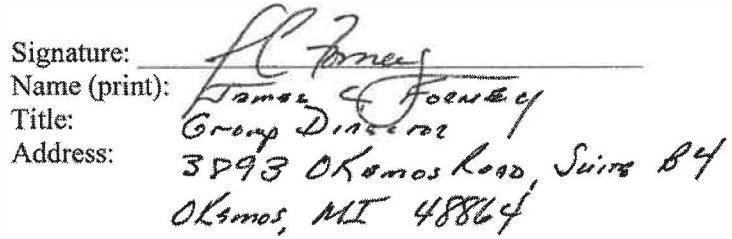 Signature: JC Forney
Name (print): James C Forney
Title: Group Director
Address: 3893 Okemos Road, Suite B4
Okemos, MI 48864